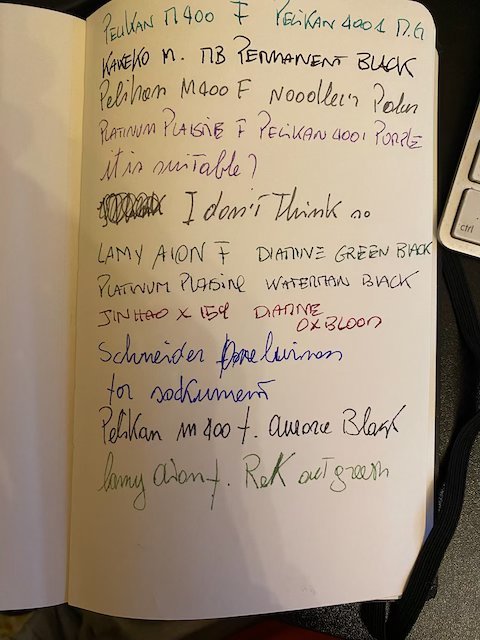 PELIKAN M400 F PELIKAN 4001 D.G
KAWEKO M. MB PERMANENT BLACK
Pelikan M400 F Noodler's Polar
PLATINUM PLAISIRE F PELIKAN 4001 PURPLE
it is suitable?
I don't Think so
LAMY AION F DIAMINE GREEN BLACK
PLATINUM PLAISIRE WATERMAN BLACK
JINHAO X 159 DIAMINE
OXBLOOD
Schneider
for sockument
Pelikan M400 f. Aurora Black
lamy aion f. R&K alt green
ctrl